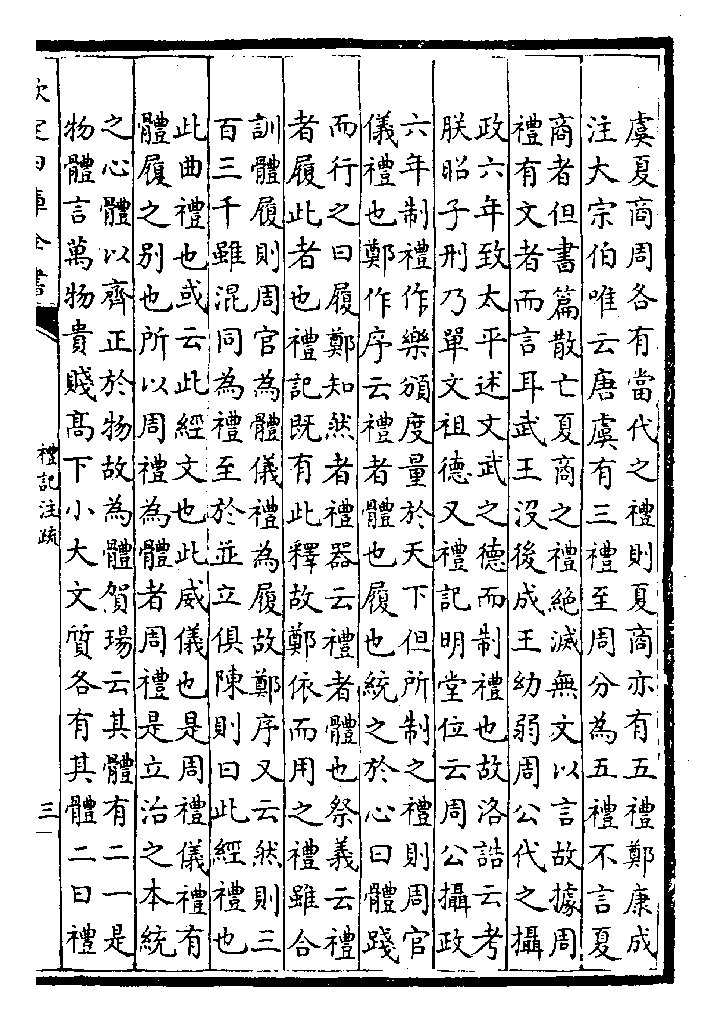 虞夏商周各有當代之禮則夏商亦有五禮鄭康成
注大宗伯唯云唐虞有三禮至周分為五禮不言夏
商者但書篇散亡夏商之禮絕滅無文以言故據周
禮有文者而言耳武王没後成王幼弱周公代之攝
政六年致太平述文武之德而制禮也故洛誥云考
朕昭子刑乃單文祖德又禮記明堂位云周公攝政
六年制禮作樂頒度量於天下但所制之禮則周官
儀禮也鄭作序云禮者體也履也統之於心曰體踐
而行之曰履鄭知然者禮器云禮者體也祭義云禮
者履此者也禮記既有此釋故鄭依而用之禮雖合
訓體履則周官為體儀禮為履故鄭序又云然則三
百三千雖混同為禮至於並立俱陳則曰此經禮也
此曲禮也或云此經文也此威儀也是周禮儀禮有
體履之别也所以周禮為體者周禮是立治之本統
之心體以齊正於物故為體賀瑒云其體有二一是
物體言萬物貴賤髙下小大文質各有其體二曰禮
欽定四庫全書
禮記注疏
三